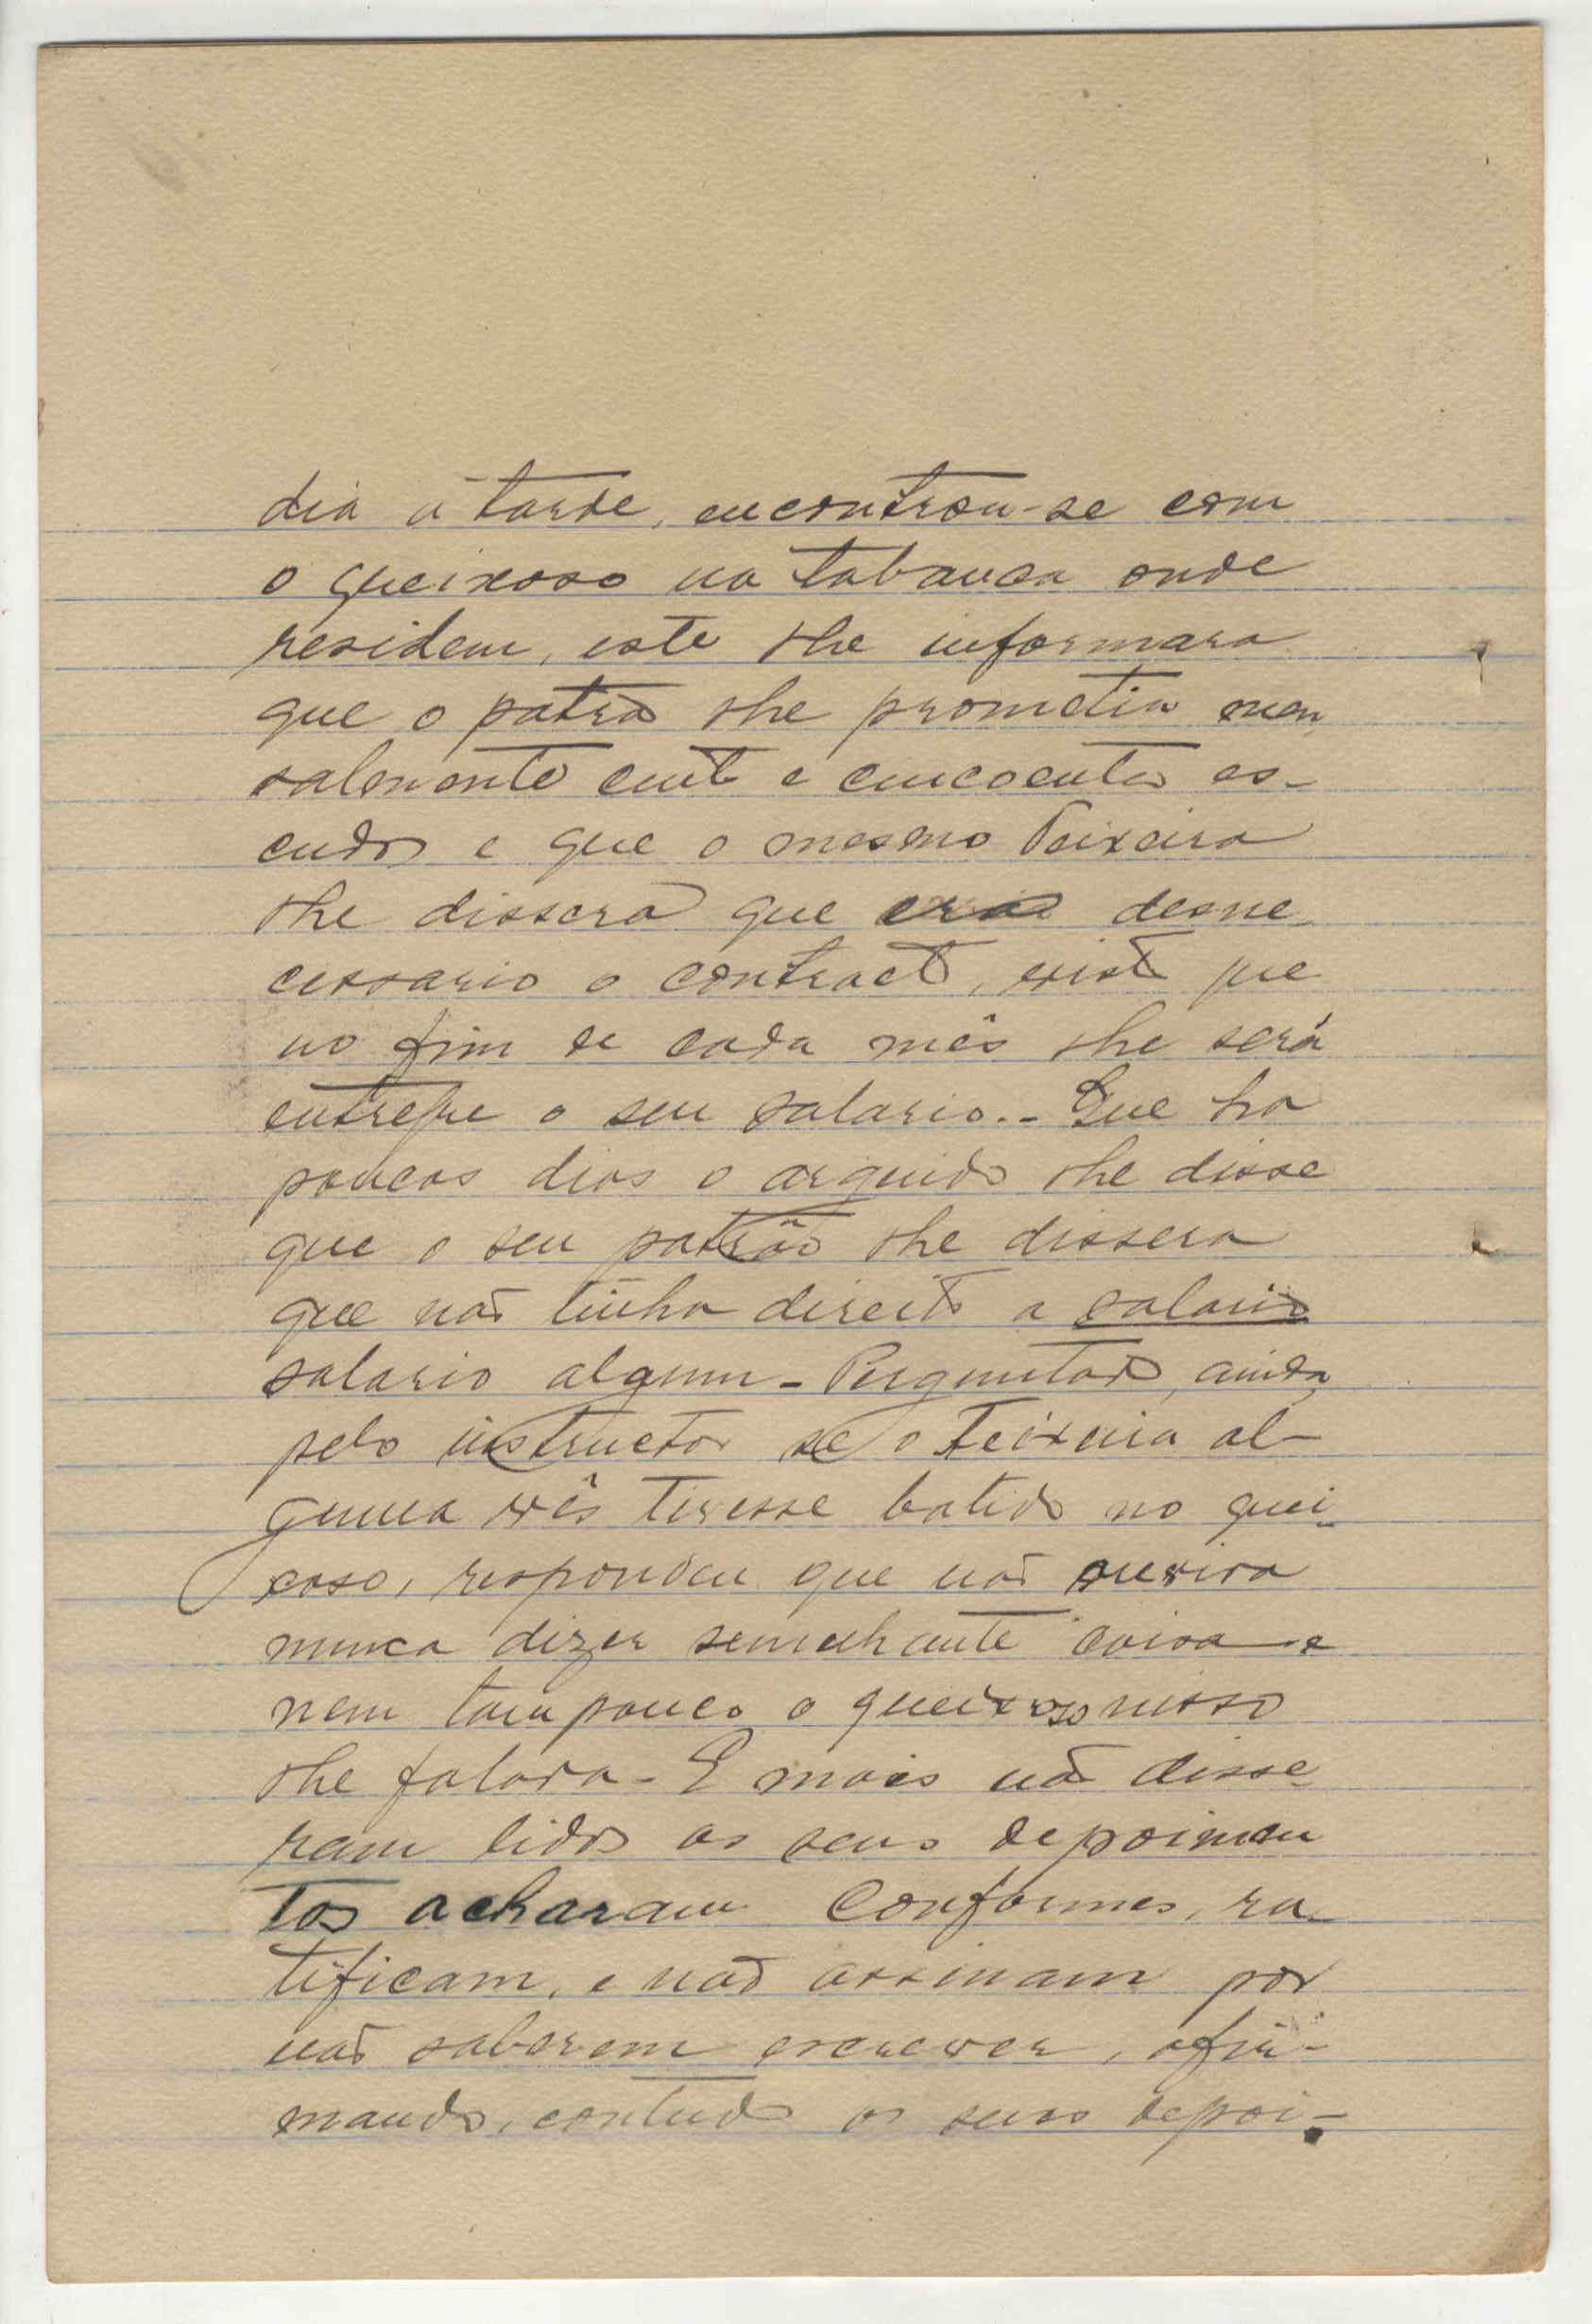 dia á tarde, encontrou-se com
o queixoso na tabanca onde
residem, este lhe informara
que o patrão lhe prometia men
salmente cento e cincoenta es-
cudos e que o mesmo Teixeira
lhe dissera que era desne
cessario o contracto, visto que
no fim de cada mês lhe será
entregue o seu salario.- Que ha
poucos dias o arguido lhe disse
que o seu patrão lhe dissera
que não tinha direito a salario
salario algum - Perguntado, ainda
pelo instructor se o Teixeira al-
guma vês tivesse batido no quei-
xoso, respondeu que não ouvira
nunca dizer semelhante coisa e
nem tam pouco o queixoso nisso
lhe falara - E mais não disse
ram lidos os seus depoimen
tos acharam conformes, ra-
tificam, e não assinam por
não saberem escrever, afir-
mando, contudo os seus depoi-